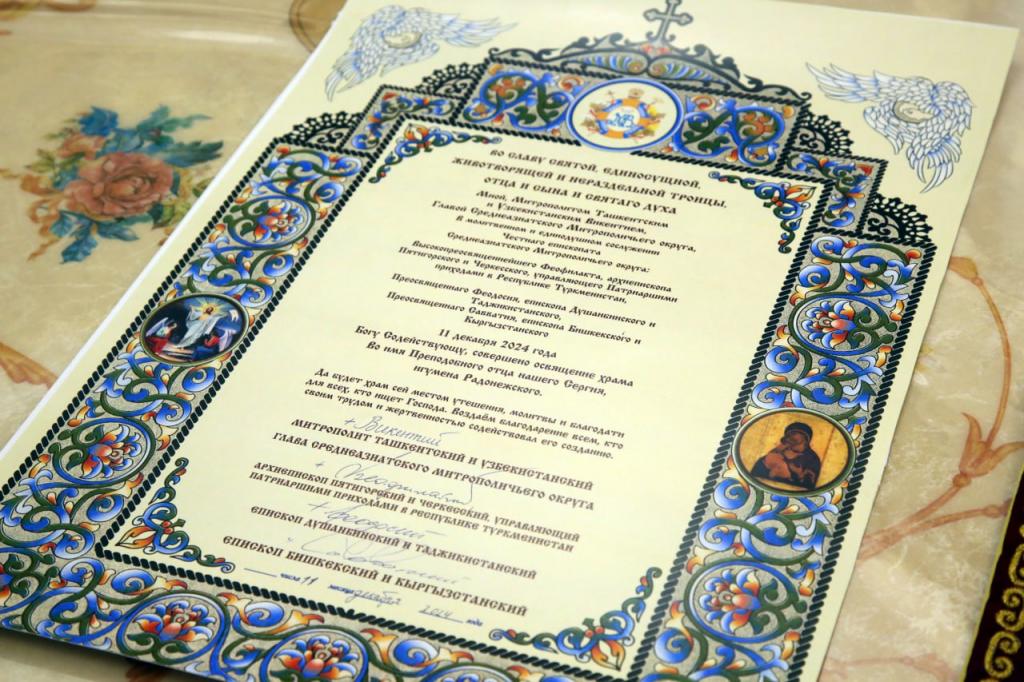 ВО СЛАВУ СВЯТОЙ, ЕДИНОСУЩНОЙ,
ЖИВОТВОРЯЩЕЙ И НЕРАЗДЕЛЬНОЙ ТРОИЦЫ,
ОТЦА И СЫНА И СВЯТАГО ДУХА
Мной, Митрополитом Ташкентским
и Узбекистанским Викентием,
Главой Среднеазиатского Митрополичьего округа,
в молитвенном и единодушном сослужении
Честнаго епископата
Среднеазиатского Митрополичьего округа:
Высокопреосвященнейшего Феофилакта, архиепископа
Пятигорского и Черкесского, управляющего Патриаршими
приходами в Республике Туркменистан,
Преосвященнаго Феодосия, епископа Душанбинского и
Таджикистанского,
Преосвященнаго Савватия, епископа Бишкекского и
Кыргызстанского
11 декабря 2024 года
Богу Содействующу, совершено освящение храма
Во имя Преподобного отца нашего Сергия,
игумена Радонежского.
Да будет храм сей местом утешения, молитвы и благодати
для всех, кто ищет Господа. Воздаём благодарение всем, кто
своим трудом и жертвенностью содействовал его созданию.
+ Викентий
МИТРОПОЛИТ ТАШКЕНТСКИЙ И УЗБЕКИСТАНСКИЙ
ГЛАВА СРЕДНЕАЗИАТСКОГО МИТРОПОЛИЧЬЕГО ОКРУГА
+ Феофилакт
АРХИЕПИСКОП ПЯТИГОРСКИЙ И ЧЕРКЕССКИЙ, УПРАВЛЯЮЩИЙ
ПАТРИАРШИМИ ПРИХОДАМИ В РЕСПУБЛИКЕ ТУРКМЕНИСТАН
+ Феодосий
ЕПИСКОП ДУШАНБИНСКИЙ И ТАДЖИКИСТАНСКИЙ
ЕПИСКОП БИШКЕКСКИЙ И КЫРГЫЗСТАНСКИЙ
числа 11 месяца декабря 2024 года